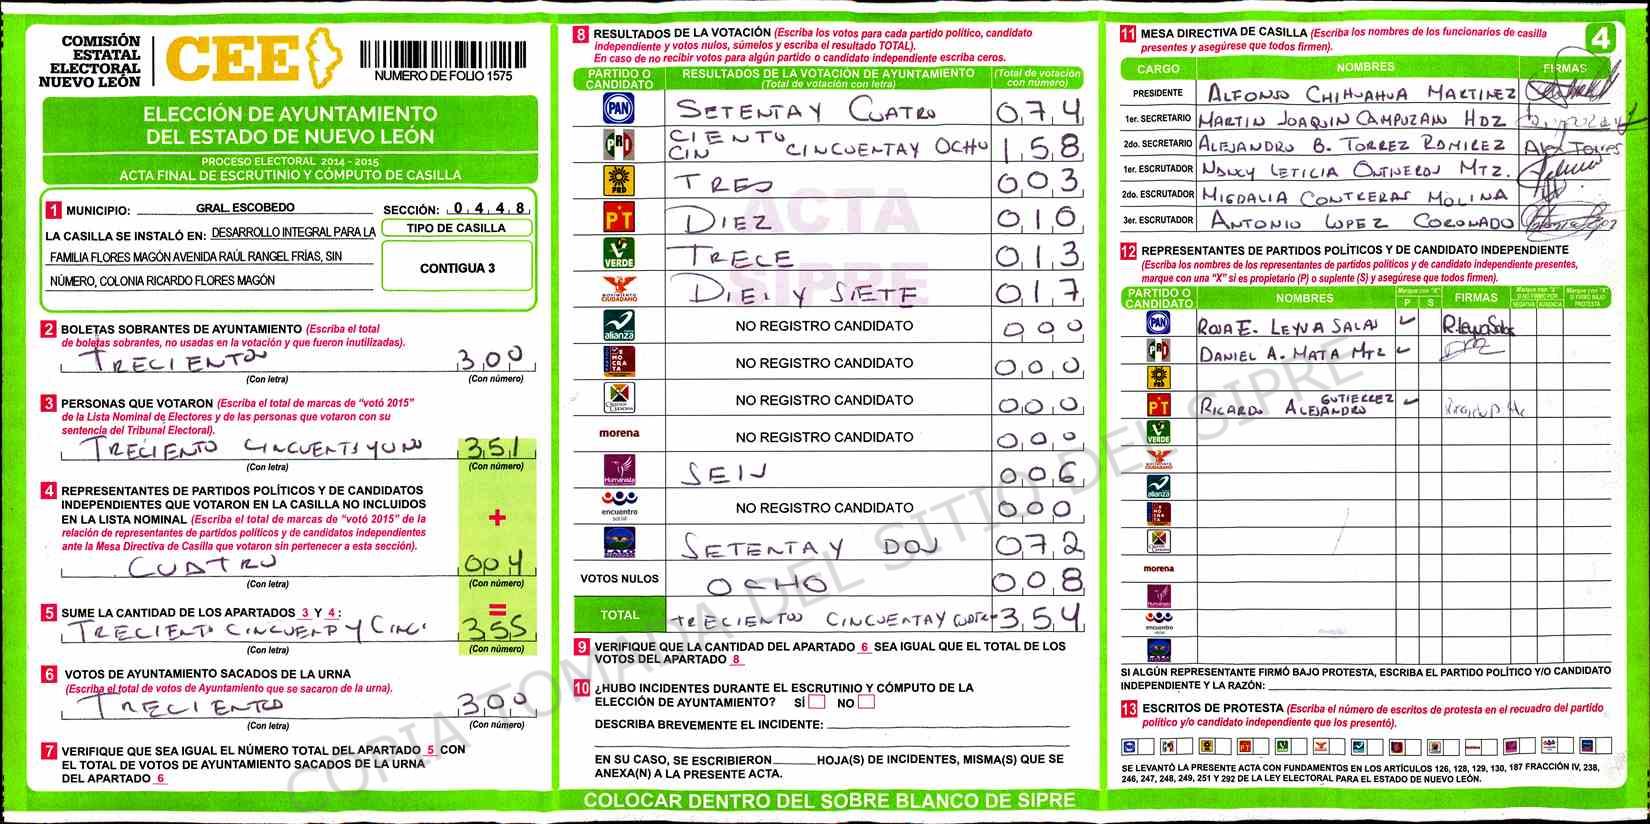 COMISIÓN
ESTATAL
ELECTORAL
NUEVO LEÓN
CEE
NUMERO DE FOLIO 1575
ELECCIÓN DE AYUNTAMIENTO
DEL ESTADO DE NUEVO LEÓN
PROCESO ELECTORAL 2014 - 2015
ACTA FINAL DE ESCRUTINIO Y CÓMPUTO DE CASILLA
1 MUNICIPIO: GRAL. ESCOBEDO SECCIÓN: 0 4 4 8
LA CASILLA SE INSTALÓ EN: DESARROLLO INTEGRAL PARA LA
FAMILIA FLORES MAGÓN AVENIDA RAÚL RANGEL FRÍAS, SIN
NÚMERO, COLONIA RICARDO FLORES MAGÓN
TIPO DE CASILLA
CONTIGUA 3
2 BOLETAS SOBRANTES DE AYUNTAMIENTO (Escriba el total
de boletas sobrantes, no usadas en la votación y que fueron inutilizadas).
TRECIENTOS 3,0,0
(Con letra) (Con número)
3 PERSONAS QUE VOTARON (Escriba el total de marcas de “votó 2015”
de la Lista Nominal de Electores y de las personas que votaron con su
sentencia del Tribunal Electoral).
TRECIENTO CINCUENTAYUNO 3,5,1
(Con letra) (Con número)
4 REPRESENTANTES DE PARTIDOS POLÍTICOS Y DE CANDIDATOS
INDEPENDIENTES QUE VOTARON EN LA CASILLA NO INCLUIDOS
EN LA LISTA NOMINAL (Escriba el total de marcas de “votó 2015” de la
relación de representantes de partidos políticos y de candidatos independientes
ante la Mesa Directiva de Casilla que votaron sin pertenecer a esta sección).
+
CUATRO 004
(Con letra) (Con número)
=
5 SUME LA CANTIDAD DE LOS APARTADOS 3 Y 4 :
TRECIENTO CINCUENTAY CINC. 355
(Con letra) (Con número)
6 VOTOS DE AYUNTAMIENTO SACADOS DE LA URNA
(Escriba el total de votos de Ayuntamiento que se sacaron de la urna).
TRECIENTO 3,0,0
(Con letra) (Con número)
7 VERIFIQUE QUE SEA IGUAL EL NÚMERO TOTAL DEL APARTADO 5 CON
EL TOTAL DE VOTOS DE AYUNTAMIENTO SACADOS DE LA URNA
DEL APARTADO 6
8 RESULTADOS DE LA VOTACIÓN (Escriba los votos para cada partido político, candidato
independiente y votos nulos, súmelos y escriba el resultado TOTAL).
En caso de no recibir votos para algún partido o candidato independiente escriba ceros.
PARTIDO O CANDIDATO RESULTADOS DE LA VOTACIÓN DE AYUNTAMIENTO (Total de votación con letra) (Total de votación con número)
PAN SETENTAY CUATRO 0,7,4
PRI CIENTO
CIN CINCUENTAY OCHO 1,5,8
PRD TRES 0,0,3
PT DIEZ 0,1,0
VERDE TRECE 0,1,3
MOVIMIENTO CIUDADANO DIEZ Y SIETE 0,1,7
alianza NO REGISTRO CANDIDATO 0 0 0
DEMOCRATA NO REGISTRO CANDIDATO 0,0,0
NO REGISTRO CANDIDATO 0,0,0
morena NO REGISTRO CANDIDATO 0,0,0
Humanista SEIS 0,0,6
encuentro social NO REGISTRO CANDIDATO 0,0,0
SETENTAY DOS 0,7,2
VOTOS NULOS OCHO 0,0,8
TOTAL TRECIENTOS CINCUENTAY CUATRO 3,5,4
ACTA
SIPRE
9 VERIFIQUE QUE LA CANTIDAD DEL APARTADO 6 SEA IGUAL QUE EL TOTAL DE LOS
VOTOS DEL APARTADO 8
10 ¿HUBO INCIDENTES DURANTE EL ESCRUTINIO Y CÓMPUTO DE LA
ELECCIÓN DE AYUNTAMIENTO? SÍ NO
DESCRIBA BREVEMENTE EL INCIDENTE:
EN SU CASO, SE ESCRIBIERON HOJA(S) DE INCIDENTES, MISMA(S) QUE SE
ANEXA(N) A LA PRESENTE ACTA.
COLOCAR DENTRO DEL SOBRE BLANCO DE SIPRE
COPIA TOMADA DEL SITIO DEL SIPRE
11 MESA DIRECTIVA DE CASILLA (Escriba los nombres de los funcionarios de casilla
presentes y asegúrese que todos firmen).
4
CARGO NOMBRES FIRMAS
PRESIDENTE ALFONSO CHIHUAHUA MARTINEZ
1er. SECRETARIO MARTIN JOAQUIN CAMPUZAN HDZ
2do. SECRETARIO ALEJANDRO B. TORREZ RAMIREZ Alex Torres
1er. ESCRUTADOR NANCY LETICIA ONTIVEROS MTZ.
2do. ESCRUTADOR MIGDALIA CONTRERAS MOLINA
3er. ESCRUTADOR ANTONIO LOPEZ CORONADO
12 REPRESENTANTES DE PARTIDOS POLÍTICOS Y DE CANDIDATO INDEPENDIENTE
(Escriba los nombres de los representantes de partidos políticos y de candidato independiente presentes,
marque con una “X” si es propietario (P) o suplente (S) y asegúrese que todos firmen).
PARTIDO O CANDIDATO NOMBRES Marque con “X” P S FIRMAS Marque con “X” SI NO FIRMÓ POR NEGATIVA AUSENCIA Marque con “X” SI FIRMÓ BAJO PROTESTA
PAN ROSA E. LEYVA SALAS R.LeyvaSalas
PRI DANIEL A. MATA MTZ
PRD
PT RICARDO ALEJANDRO GUTIERREZ
VERDE
MOVIMIENTO CIUDADANO
alianza
DEMOCRATA
morena
Humanista
encuentro social
SI ALGÚN REPRESENTANTE FIRMÓ BAJO PROTESTA, ESCRIBA EL PARTIDO POLÍTICO Y/O CANDIDATO
INDEPENDIENTE Y LA RAZÓN:
13 ESCRITOS DE PROTESTA (Escriba el número de escritos de protesta en el recuadro del partido
político y/o candidato independiente que los presentó).
SE LEVANTÓ LA PRESENTE ACTA CON FUNDAMENTOS EN LOS ARTÍCULOS 126, 128, 129, 130, 187 FRACCIÓN IV, 238,
246, 247, 248, 249, 251 Y 292 DE LA LEY ELECTORAL PARA EL ESTADO DE NUEVO LEÓN.